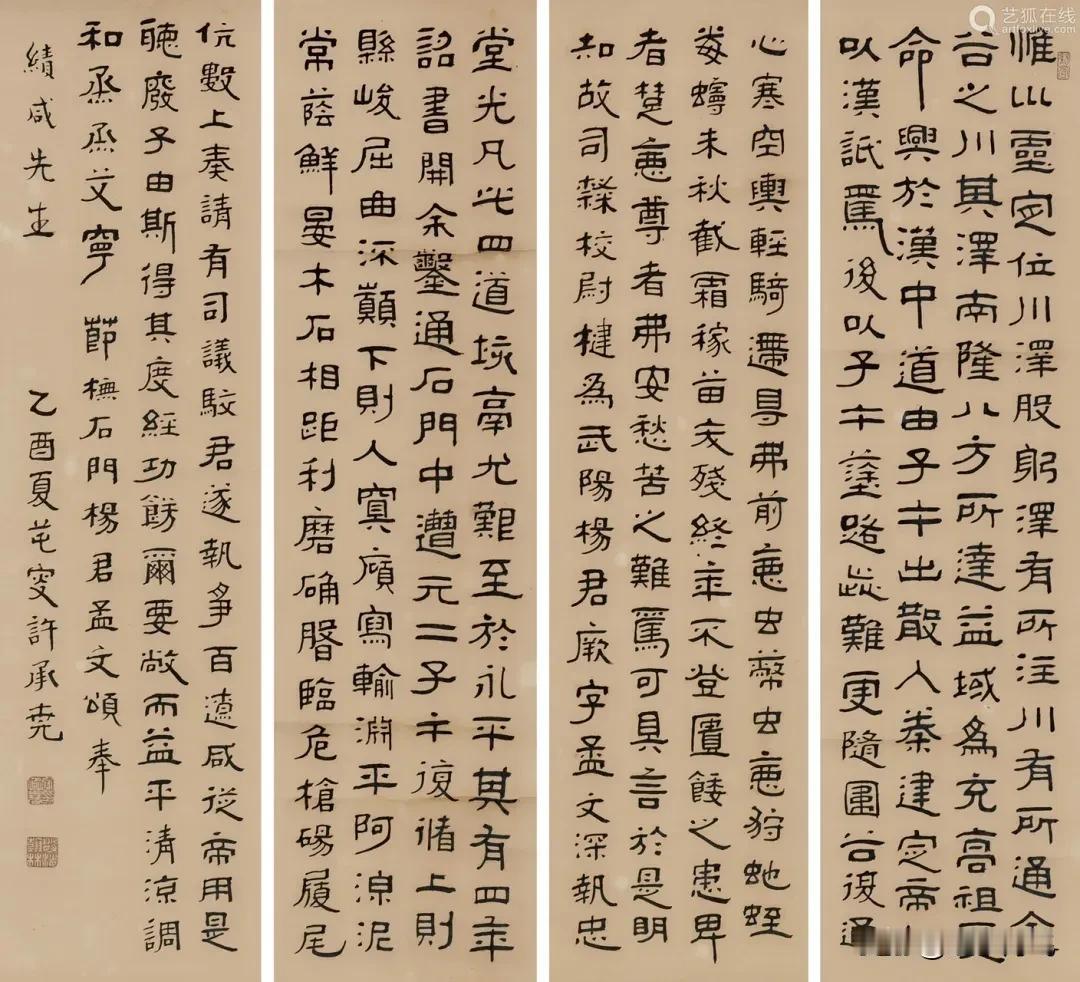 艺狐在线
artfoxlive.com
惟巛靈定位川澤股躬澤有所注川有所通余
谷之川其澤南隆八方所達益域為充高祖受
命興於漢中道由子午出散入秦建定帝
以漢詆焉後以子午塗路歮難更隨圍谷復通
心寒空輿輕騎遰㝵弗前惡虫幣虫惡狩虵蛭
毒未秋截霜稼苗夭殘終年不登匱餧之患卑
者楚惡尊者弗安愁苦之難焉可具言於是明
知故司隸校尉楗為武陽楊君厥字孟文深執忠
堂光凡此四道垓鬲尤艱至於永平其有四年
詔書開余鑿通石門中遭元二子午復循上則
縣峻屈曲流顛下則人寞庼寫輸淵平阿湶泥
常蔭鮮晏木石相距利磨确臨危槍碭履尾
伉數上奏請有司議駮君遂執爭百遼咸從帝用是
聽廢子由斯得其度經功餝爾要敞而益平清涼調
和烝烝艾寧 節橅石門楊君孟文頌奉
績咸先生 乙酉夏芚叜許承堯